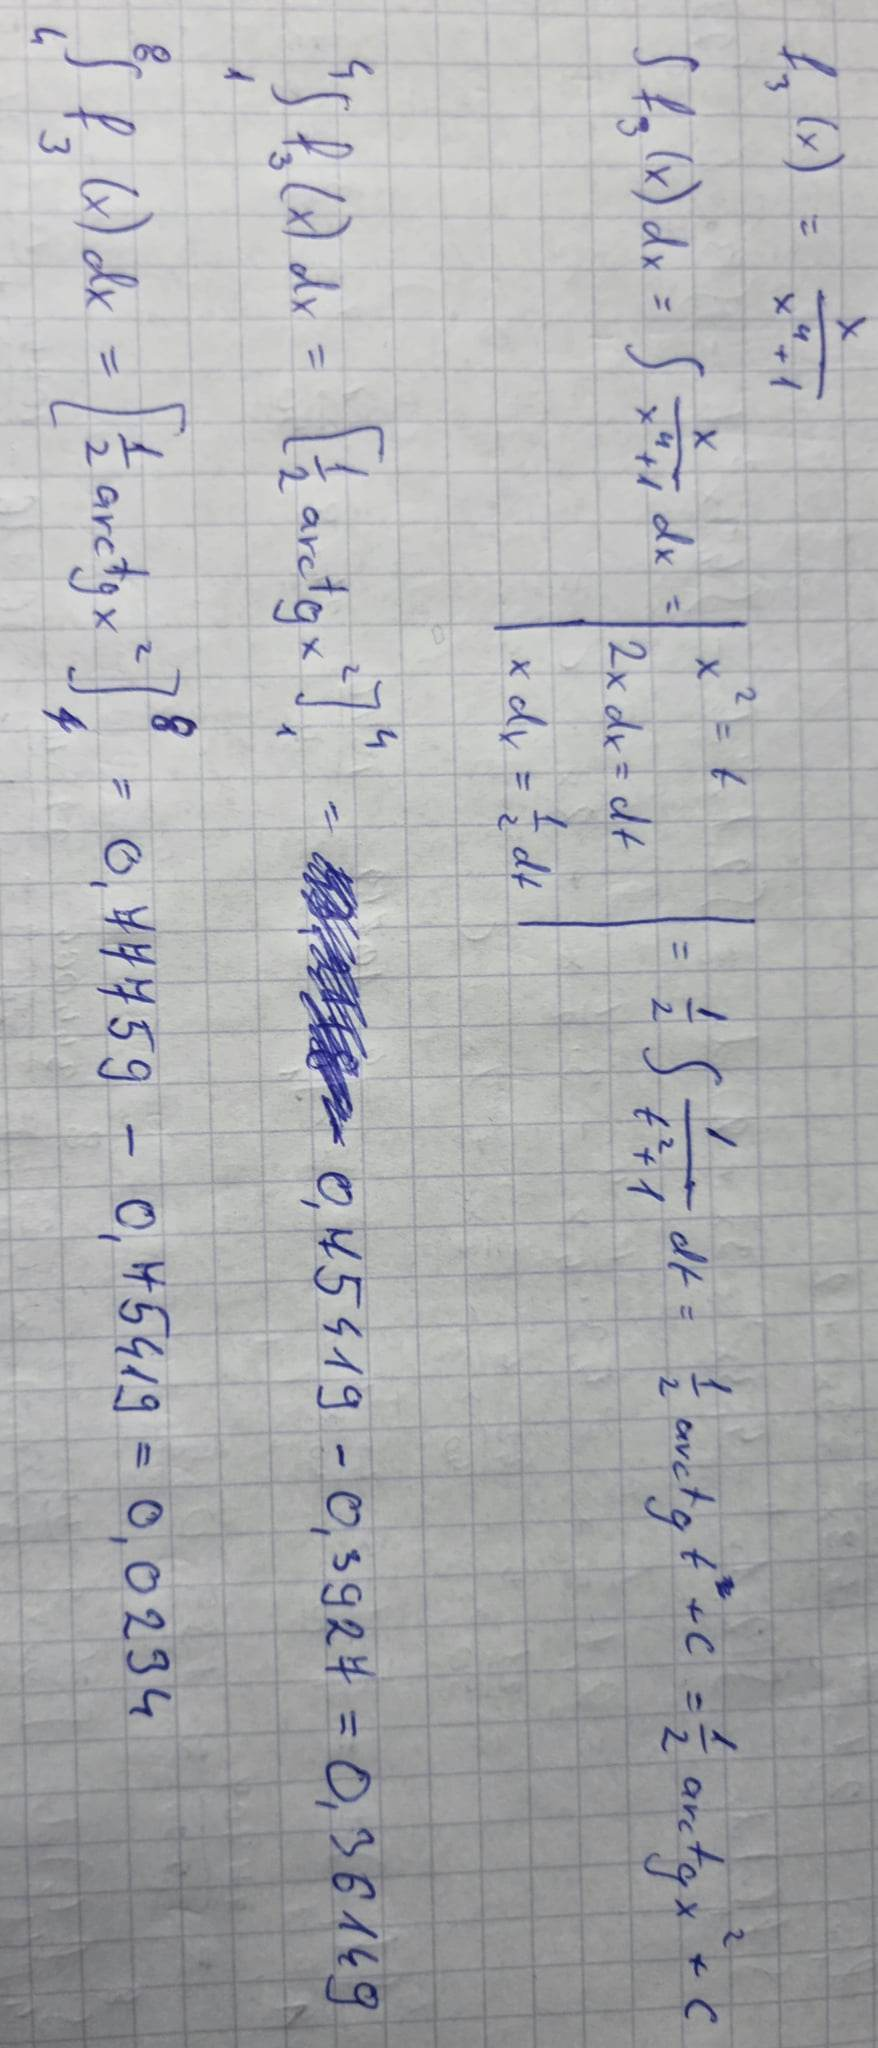 f₃(x) = x/(x⁴+1)
∫ f₃(x) dx = ∫ x/(x⁴+1) dx = | x² = t 2x dx = dt x dx = 1/2 dt | = 1/2 ∫ 1/(t²+1) dt = 1/2 arctg t + C = 1/2 arctg x² + C
₁⁴∫ f₃(x) dx = [1/2 arctg x²]₁⁴ = 0,75419 - 0,3927 = 0,36149
₄⁸∫ f₃(x) dx = [1/2 arctg x²]₄⁸ = 0,77759 - 0,75419 = 0,0234